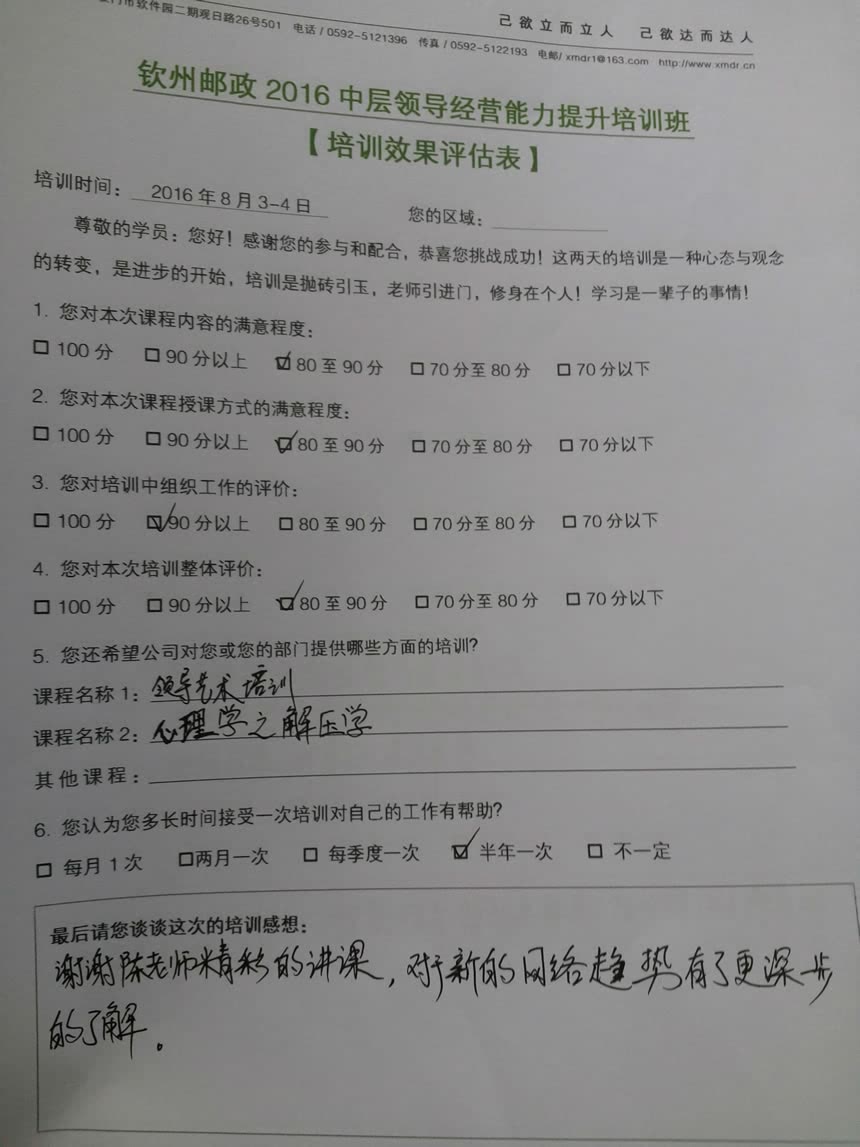 己欲立而立人 己欲达而达人
市软件园二期观日路26号501 电话 / 0592-5121396 传真 / 0592-5122193 电邮/ xmdr1@163.com http://www.xmdr.cn
钦州邮政 2016 中层领导经营能力提升培训班
【培训效果评估表】
培训时间： 2016 年 8 月 3-4 日 您的区域：
尊敬的学员：您好！感谢您的参与和配合，恭喜您挑战成功！这两天的培训是一种心态与观念
的转变，是进步的开始，培训是抛砖引玉，老师引进门，修身在个人！学习是一辈子的事情！
1. 您对本次课程内容的满意程度：
□ 100 分 □ 90 分以上 ☑ 80 至 90 分 □ 70 分至 80 分 □ 70 分以下
2. 您对本次课程授课方式的满意程度：
□ 100 分 □ 90 分以上 ☑ 80 至 90 分 □ 70 分至 80 分 □ 70 分以下
3. 您对培训中组织工作的评价：
□ 100 分 ☑ 90 分以上 □ 80 至 90 分 □ 70 分至 80 分 □ 70 分以下
4. 您对本次培训整体评价：
□ 100 分 □ 90 分以上 ☑ 80 至 90 分 □ 70 分至 80 分 □ 70 分以下
5. 您还希望公司对您或您的部门提供哪些方面的培训？
课程名称 1：领导艺术培训
课程名称 2：心理学之解压学
其他课程：
6. 您认为您多长时间接受一次培训对自己的工作有帮助？
□ 每月 1 次 □两月一次 □ 每季度一次 ☑ 半年一次 □ 不一定
最后请您谈谈这次的培训感想：
谢谢陈老师精彩的讲课，对于新的网络趋势有了更深一步
的了解。